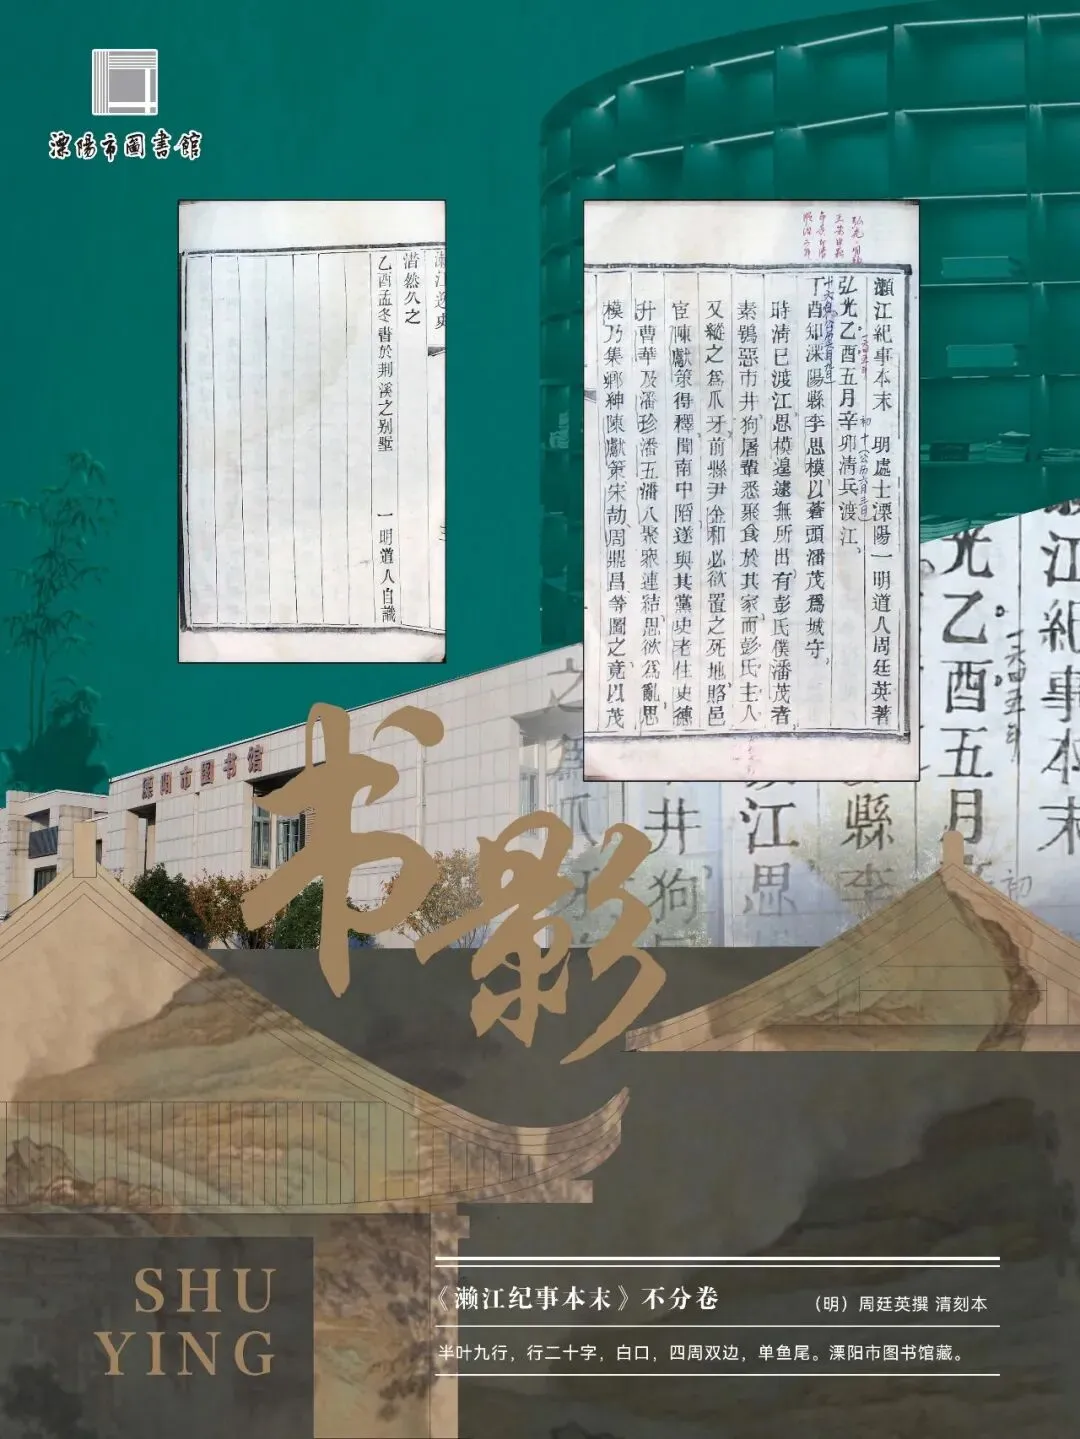 溧陽市圖書館
瀨江逸史
潸然久之
乙酉孟冬書於荆溪之别墅 一明道人自識
瀨江紀事本末 明處士溧陽一明道人周廷英著
弘光乙酉五月辛卯淸兵渡江
丁酉知溧陽縣李思模以蒼頭潘茂爲城守
時淸已渡江思模遑遽無所出有彭氏僕潘茂者
素鴞惡市井狗屠輩悉聚食於其家而彭氏主人
又縱之爲爪牙前縣尹金和必欲置之死地賂邑
宦陳獻策得釋聞南中陷遂與其黨史老住史德
升曹華及潘珍潘五潘八聚衆連結思欲爲亂思
模乃集鄉紳陳獻策宋劼周鼎昌等圖之竟以茂
一六四五年
初十(公历六月三日)
江紀事本末
光乙酉五月
一六四五年
初
縣李
江思
井狗
之爲爪牙
溧阳市图书馆
书影
SHU
YING
《濑江纪事本末》不分卷 （明）周廷英撰 清刻本
半叶九行，行二十字，白口，四周双边，单鱼尾。溧阳市图书馆藏。